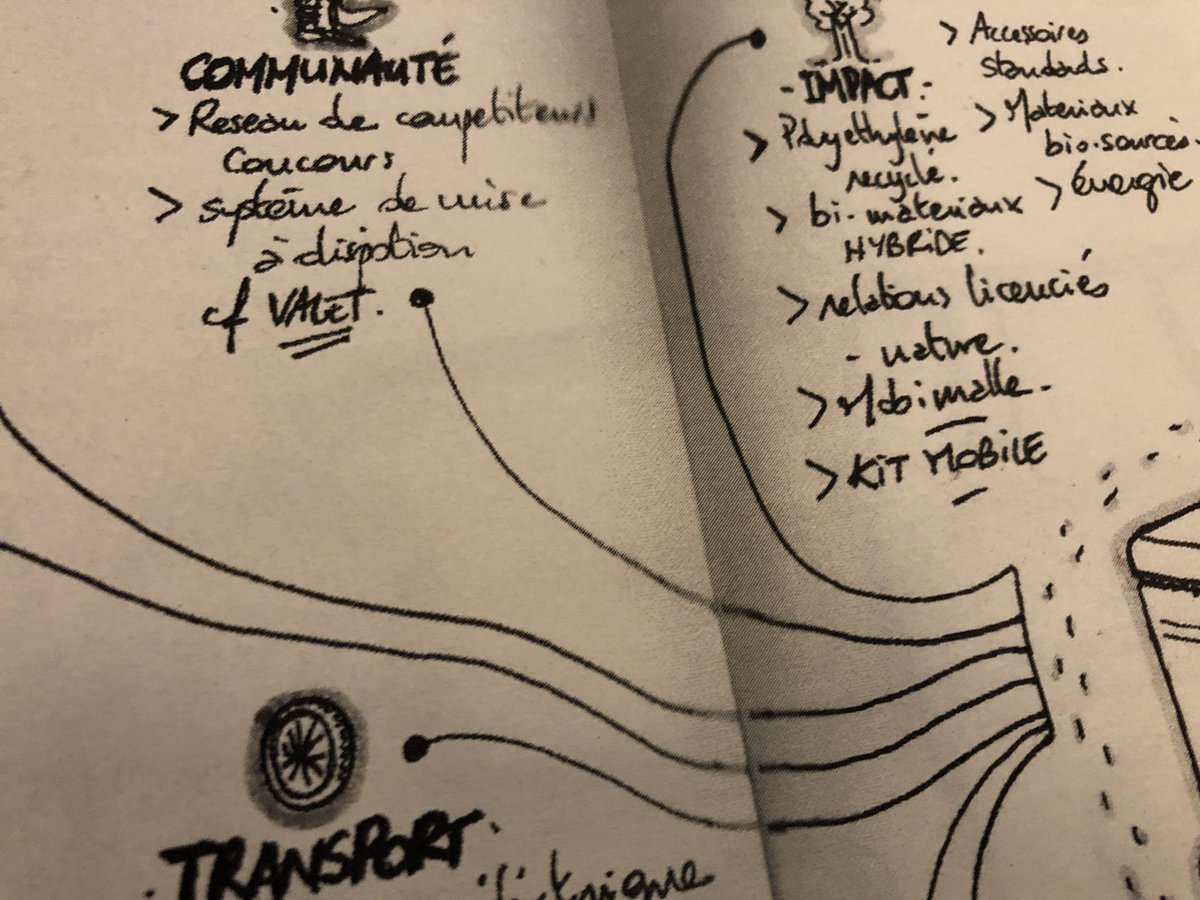 COMMUNAUTÉ
> Reseau de competiteurs
concours
> système de mise
à dispotion
cf VALET.
- IMPACT -
> Polyethylène
recyclé.
> bi-matériaux
HYBRIDE.
> relations licenciés
- nature.
> Mobimalle.
> KiT MOBiLE
> Accessoires
standards.
> Materiaux
bio-sourcés.
> énergie
. TRANSPORT.